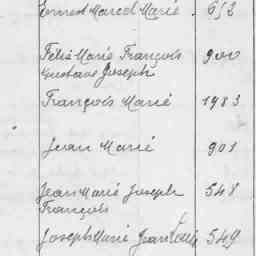 Ernest Marcel Marie . 652
Felix Marie François 900
Gustave Joseph
François Marie 1983
Jean Marie 901
Jean Marie Joseph 548
François
Joseph Marie Jean Louis 549